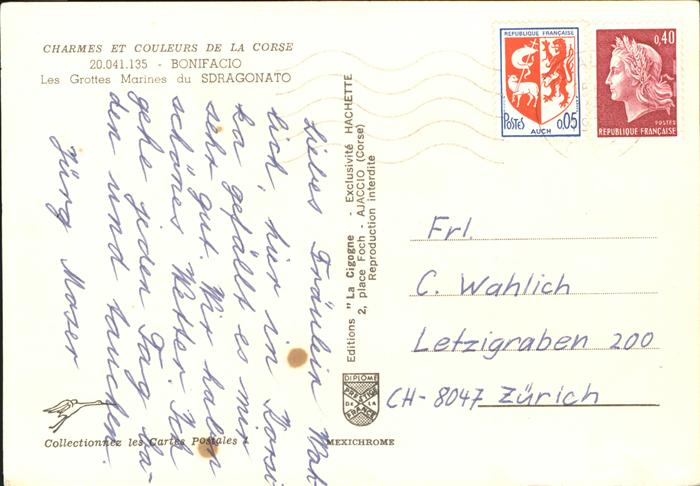 CHARMES ET COULEURS DE LA CORSE
20.041.135 - BONIFACIO
Les Grottes Marines du SDRAGONATO
Liebes Fräulein Wah
lich, hier in Korsi
ka gefällt es mir
sehr gut. Wir haben
schönes Wetter. Ich
gehe jeden Tag ba-
den und tauchen.
Jürg Moser
Collectionnez les Cartes Postales !
Editions "La Cigogne - Exclusivité HACHETTE
2, place Foch - AJACCIO (Corse)
Reproduction interdite
DIPLOME
PRESTIGE
DE LA
FRANCE
MEXICHROME
REPUBLIQUE FRANÇAISE
POSTES
0,05
AUCH
0,40
POSTES
REPUBLIQUE FRANÇAISE
Frl.
C. Wahlich
Letzigraben 200
CH-8047 Zürich